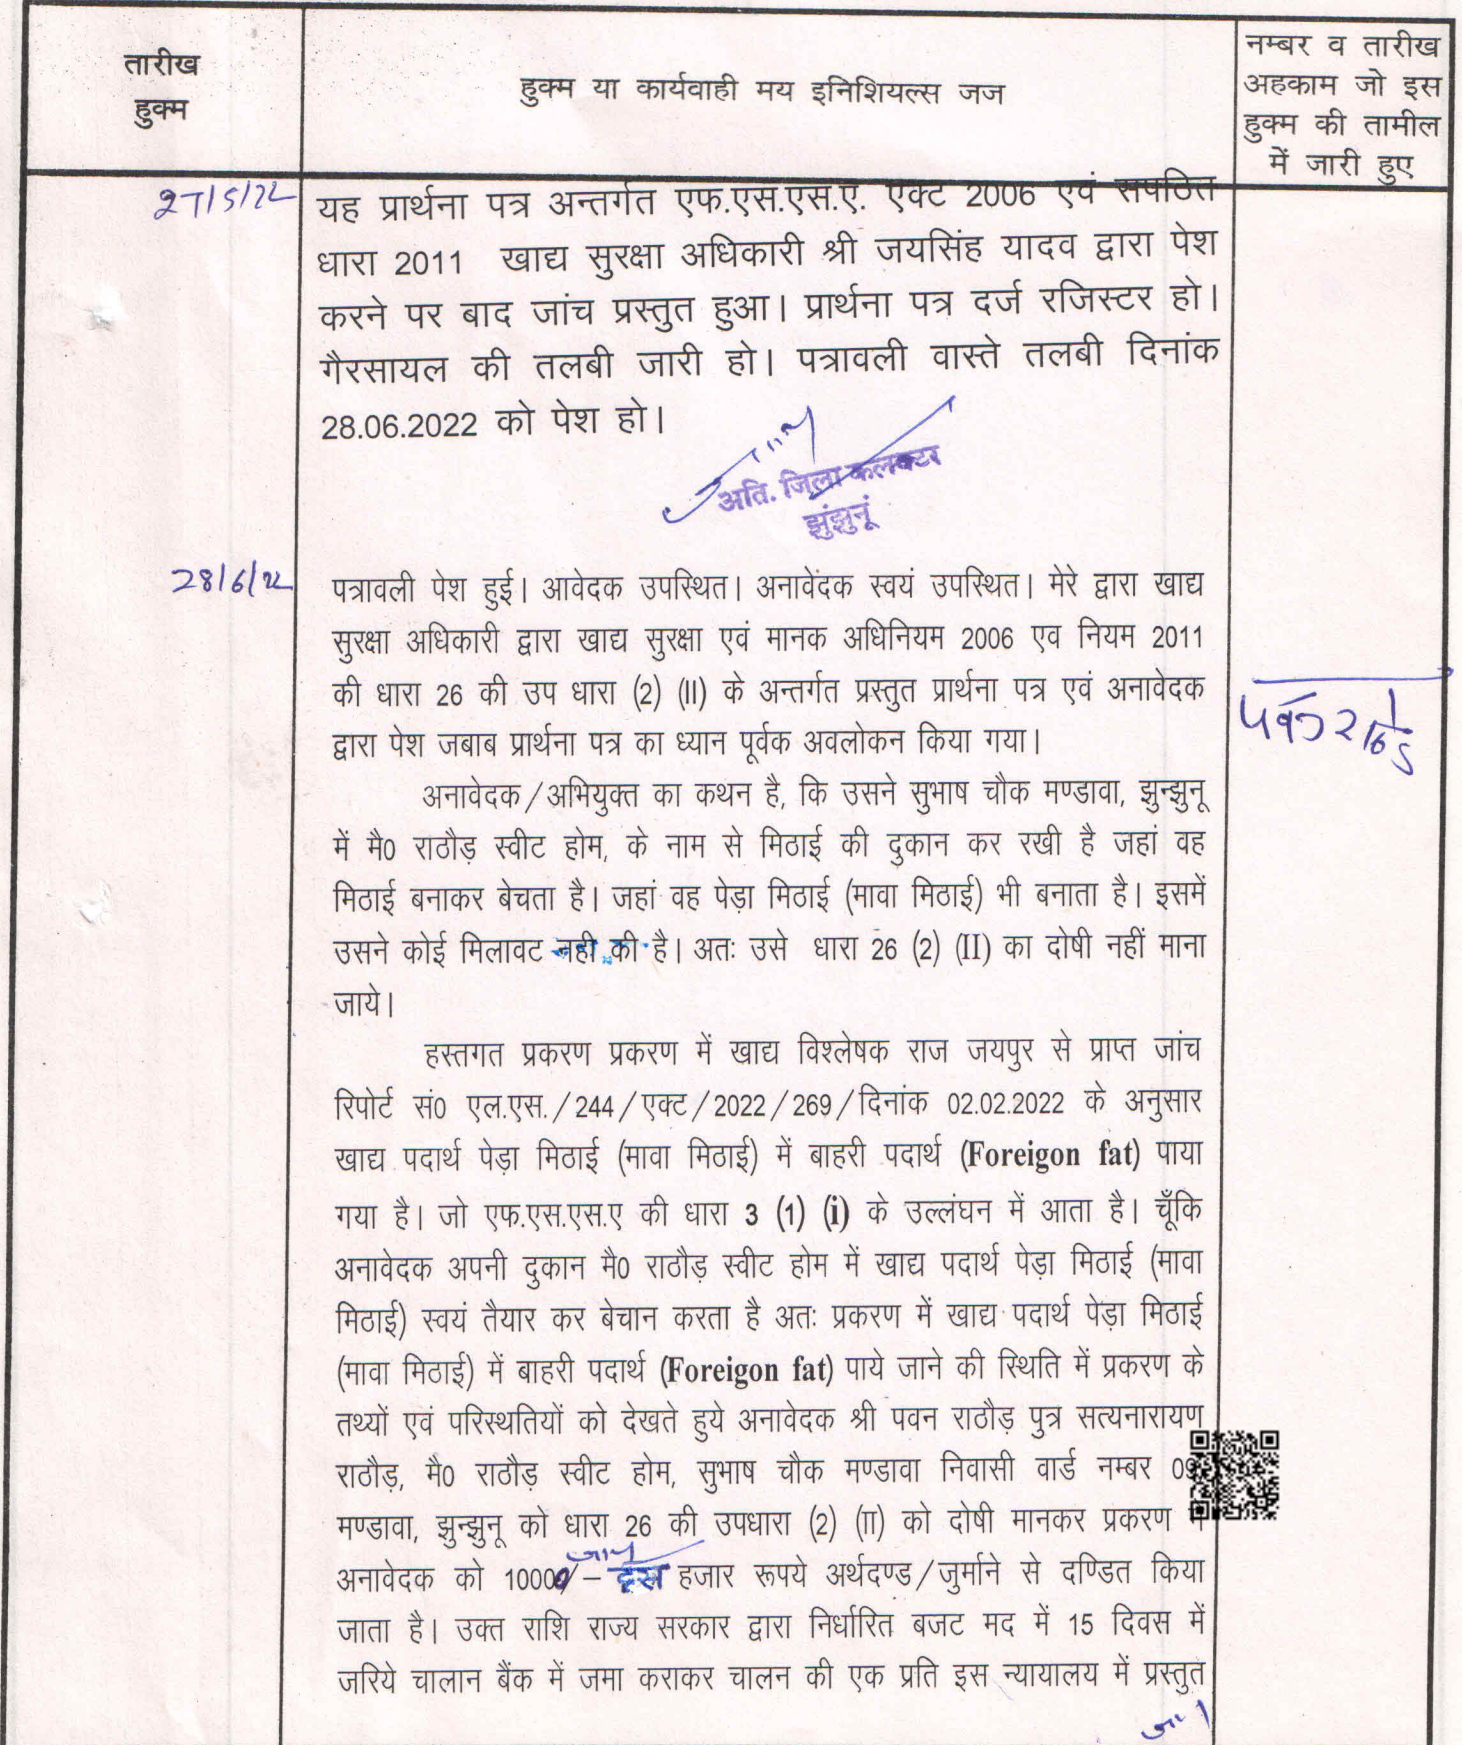 तारीख
हुक्म
हुक्म या कार्यवाही मय इनिशियल्स जज
नम्बर व तारीख
अहकाम जो इस
हुक्म की तामील
में जारी हुए
27/5/22
यह प्रार्थना पत्र अन्तर्गत एफ.एस.एस.ए. एक्ट 2006 एवं सपठित
धारा 2011 खाद्य सुरक्षा अधिकारी श्री जयसिंह यादव द्वारा पेश
करने पर बाद जांच प्रस्तुत हुआ। प्रार्थना पत्र दर्ज रजिस्टर हो।
गैरसायल की तलबी जारी हो। पत्रावली वास्ते तलबी दिनांक
28.06.2022 को पेश हो।
अति. जिला कलक्टर
झुंझुनूं
28/6/22
पत्रावली पेश हुई। आवेदक उपस्थित। अनावेदक स्वयं उपस्थित। मेरे द्वारा खाद्य
सुरक्षा अधिकारी द्वारा खाद्य सुरक्षा एवं मानक अधिनियम 2006 एव नियम 2011
की धारा 26 की उप धारा (2) (II) के अन्तर्गत प्रस्तुत प्रार्थना पत्र एवं अनावेदक
द्वारा पेश जबाब प्रार्थना पत्र का ध्यान पूर्वक अवलोकन किया गया।
अनावेदक/अभियुक्त का कथन है, कि उसने सुभाष चौक मण्डावा, झुन्झुनू
में मै0 राठौड़ स्वीट होम, के नाम से मिठाई की दुकान कर रखी है जहां वह
मिठाई बनाकर बेचता है। जहां वह पेड़ा मिठाई (मावा मिठाई) भी बनाता है। इसमें
उसने कोई मिलावट नही की है। अतः उसे धारा 26 (2) (II) का दोषी नहीं माना
जाये।
हस्तगत प्रकरण प्रकरण में खाद्य विश्लेषक राज जयपुर से प्राप्त जांच
रिपोर्ट सं0 एल.एस./244/एक्ट/2022/269/दिनांक 02.02.2022 के अनुसार
खाद्य पदार्थ पेड़ा मिठाई (मावा मिठाई) में बाहरी पदार्थ (Foreigon fat) पाया
गया है। जो एफ.एस.एस.ए की धारा 3 (1) (i) के उल्लंघन में आता है। चूँकि
अनावेदक अपनी दुकान मै0 राठौड़ स्वीट होम में खाद्य पदार्थ पेड़ा मिठाई (मावा
मिठाई) स्वयं तैयार कर बेचान करता है अतः प्रकरण में खाद्य पदार्थ पेड़ा मिठाई
(मावा मिठाई) में बाहरी पदार्थ (Foreigon fat) पाये जाने की स्थिति में प्रकरण के
तथ्यों एवं परिस्थतियों को देखते हुये अनावेदक श्री पवन राठौड़ पुत्र सत्यनारायण
राठौड़, मै0 राठौड़ स्वीट होम, सुभाष चौक मण्डावा निवासी वार्ड नम्बर 09
मण्डावा, झुन्झुनू को धारा 26 की उपधारा (2) (II) को दोषी मानकर प्रकरण
अनावेदक को 10000/- दस हजार रूपये अर्थदण्ड/जुर्माने से दण्डित किया
जाता है। उक्त राशि राज्य सरकार द्वारा निर्धारित बजट मद में 15 दिवस में
जरिये चालान बैंक में जमा कराकर चालन की एक प्रति इस न्यायालय में प्रस्तुत